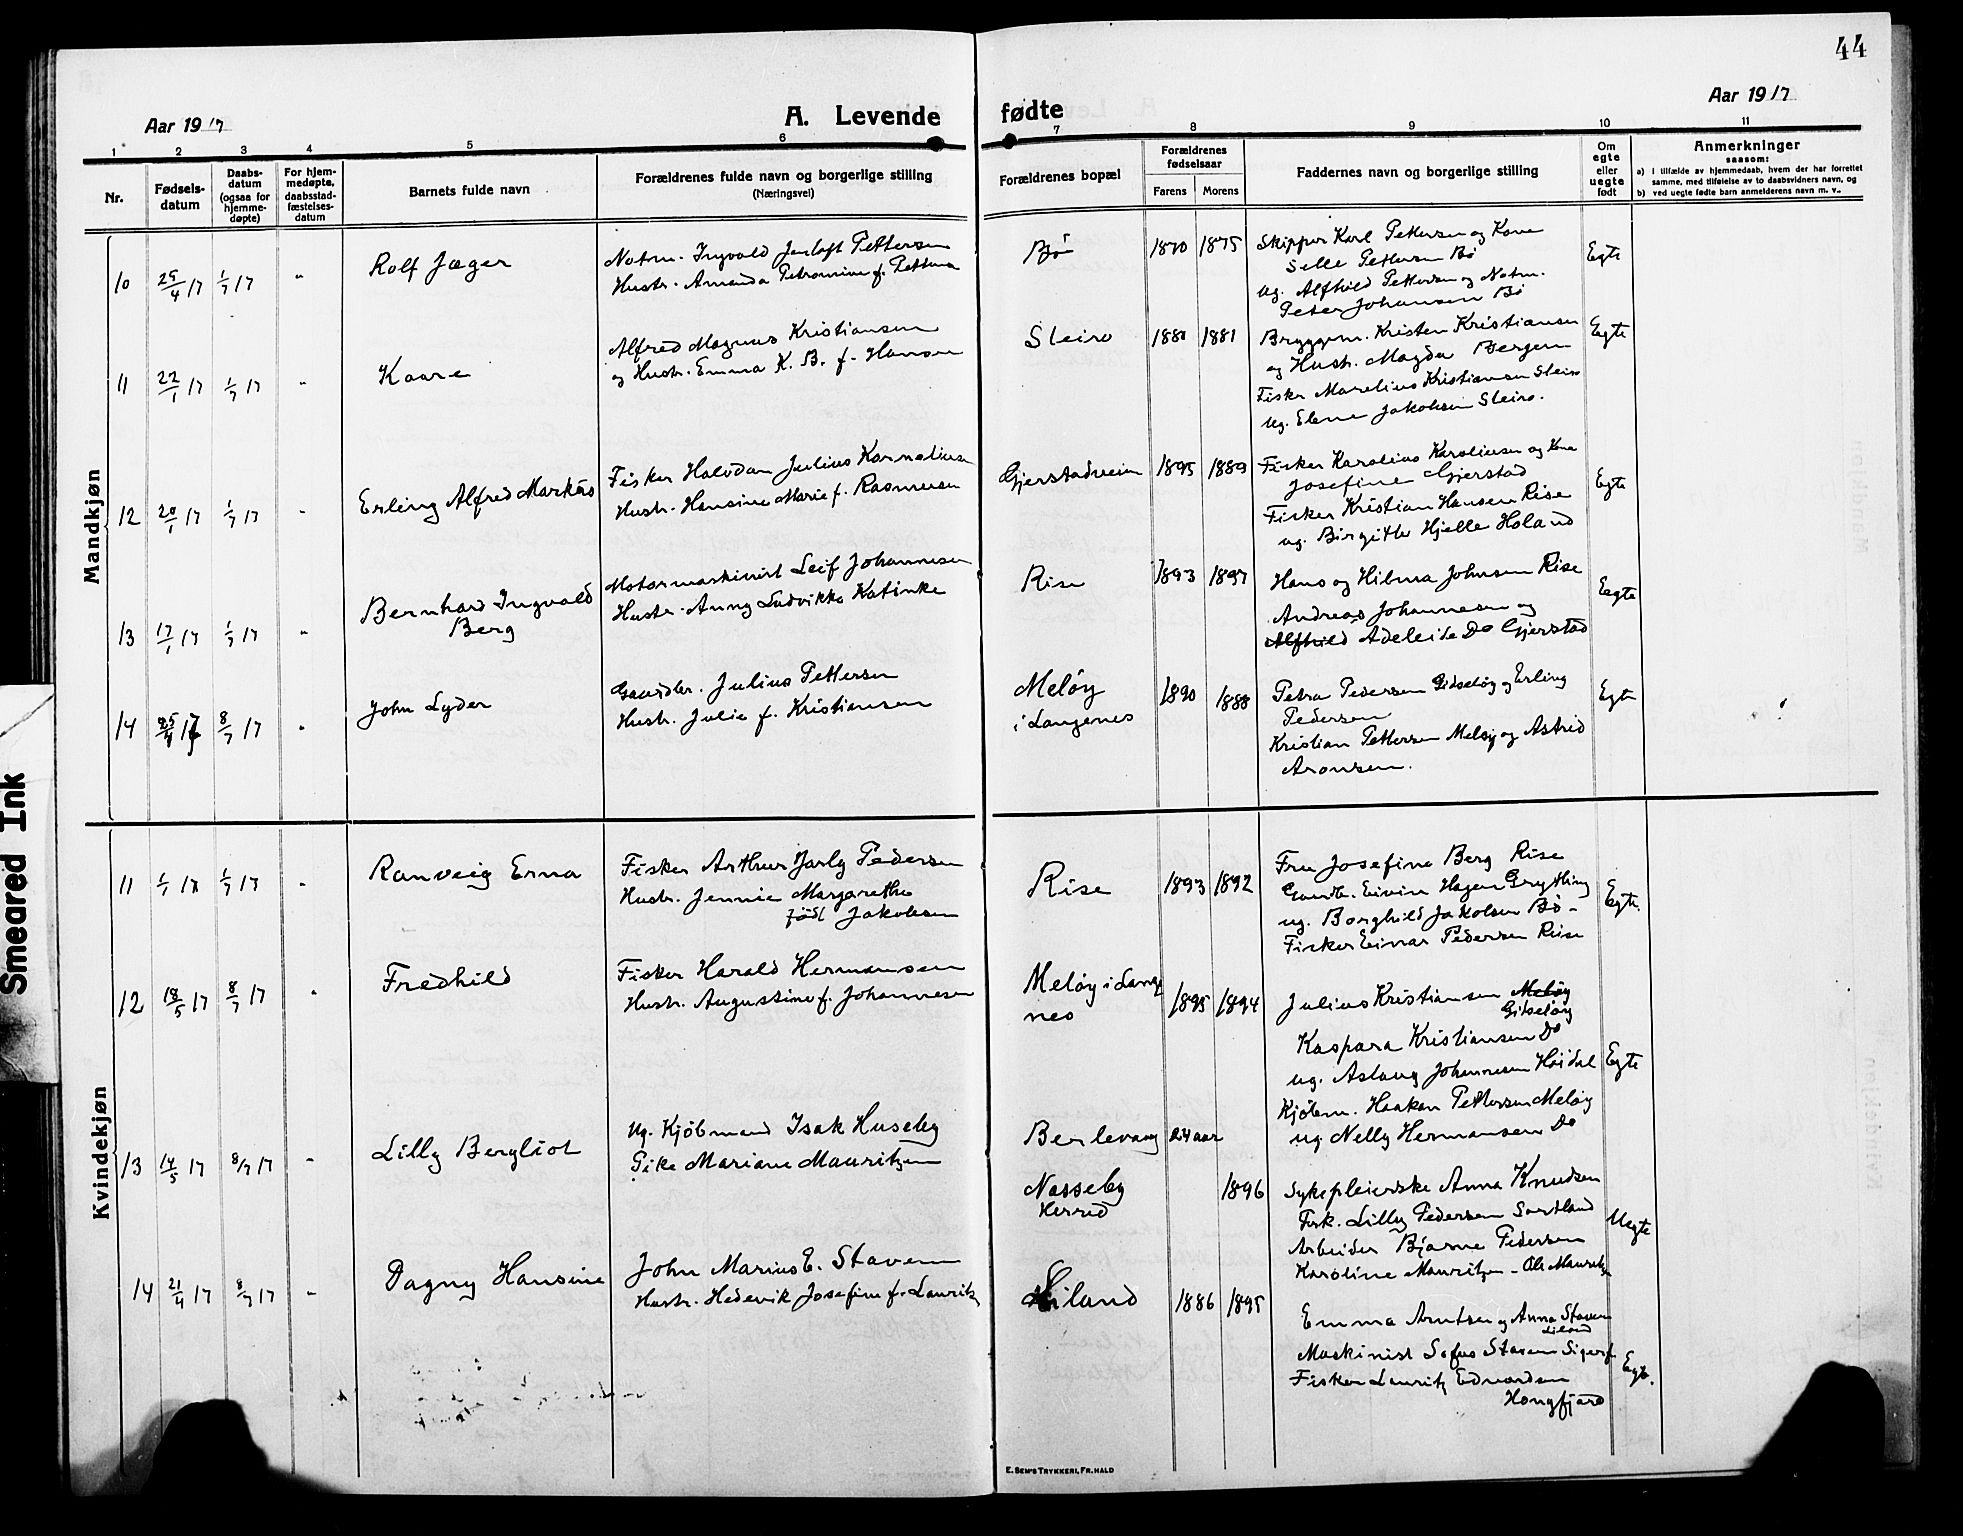 44
Aar 1917
A. Levende fødte
Aar 1917
1 2 3 4 5 6 7 8 9 10 11
Nr.
Fødsels-
datum
Daabs-
datum
(ogsaa for
hjemme-
døpte)
For hjem-
medøpte,
daabsstad-
fæstelses-
datum
Barnets fulde navn
Forældrenes fulde navn og borgerlige stilling
(Næringsvei)
Forældrenes bopæl
Forældrenes
fødselsaar
Farens Morens
Faddernes navn og borgerlige stilling
Om
egte
eller
uegte
født
Anmerkninger
saasom:
a) i tilfælde av hjemmedaab, hvem der har forrettet
samme, med tilføielse av to daabsvidners navn, og
b) ved uegte fødte barn anmelderens navn m. v..
Mandkjøn
10 29/4 17 1/7 17 "
Rolf Jæger
Notm. Ingvald Pettersen
Hustr. Amanda Petromine f.
Bø
1870 1875
Skipper Karl Pettersen og Kone
Selle Pettersen Bø
ug. Alfhild Pettersen og Notm.
Peter Johansen Bø
Egte
11 22/1 17 1/7 17 "
Kaare
Alfred Magnus Kristiansen
og Hustr. Emma K. B. f. Hansen
Sleiro
1880 1881
Bryggem. Kristen Kristiansen
og Hustr. Magda Bergen
Fisker Marelius Kristiansen Sleiro
ug. Elene Jakobsen Sleiro.
Egte
12 20/1 17 1/7 17 "
Erling Alfred Markus
Fisker Halvdan Julius Kornelius
Hustr. Hansine Marie f. Rasmusen
Gjerstadveien
1895 1889
Fisker Karolius Karoliusen og Kone
Josefine Gjerstad
Fisker Kristian Hansen Rise
ug. Birgitte Hjelle Holand
Egte
13 17/1 17 1/7 17 "
Bernhard Ingvald
Berg
Motormaskinist Leif Johannesen
Hustr. Anny Ludvikke Katinke
Rise
1893 1897
Hans og Hilma Johnsen Rise
Andreas Johannesen og
Alfhild Adeleide Do Gjerstad
Egte
14 25/4 17 8/7 17 "
John Lyder
Gaardbr. Julius Pettersen
Hustr. Julie f. Kristiansen
Meløy
i Langenes
1890 1888
Petra Pedersen Gisløy og Erling
Pedersen
Kristian Pettersen Meløy og Astrid
Aronsen.
Egte
Kvindekjøn
11 1/1 17 1/7 17 "
Ranveig Erna
Fisker Arthur Jarly Pedersen
Hustr. Jennie Margrethe
født Jakobsen
Rise
1893 1892
Fru Josefine Berg Rise
Gaardbr. Eivin Hagen Grytting
ug. Borghild Jakobsen Bø -
Fisker Einar Pedersen Rise
Egte.
12 18/5 17 8/7 17 "
Fredhild
Fisker Harald Hermansen
Hustr. Augustine f. Johannesen
Meløy i Lange
nes
1895 1894
Julius Kristiansen Meløy
Gisløy
Kaspara Kristiansen Do
ug. Aslaug Johannesen Høidal
Kjøbm. Haakon Pettersen Meløy
ug. Nelly Hermansen Do
Egte
13 14/5 17 8/7 17 "
Lilly Bergliot
Ug. Kjøbmand Isak Huseby
Pike Mariane Mauritzen
Berlevaag 24 aar
Nesseby
Herred
1896
Sykepleierske Anna Knudsen
Frk. Lilly Pedersen Sortland
Arbeider Bjarne Pedersen
Karoline Mauritzen - Ole Mauritzen
Uegte
14 21/4 17 8/7 17 "
Dagny Hansine
John Marius E. Staven
Hustr. Hedevik Josefine f. Lauritz
Liland
1886 1895
Emma Arntsen og Anna Staven
Liland
Maskinist Sofus Staven Sigerf
Fisker Lauritz Edvardsen
Hongfjord
Egte.
E. SEM'S TRYKKERI, FR.HALD
Smeared Ink